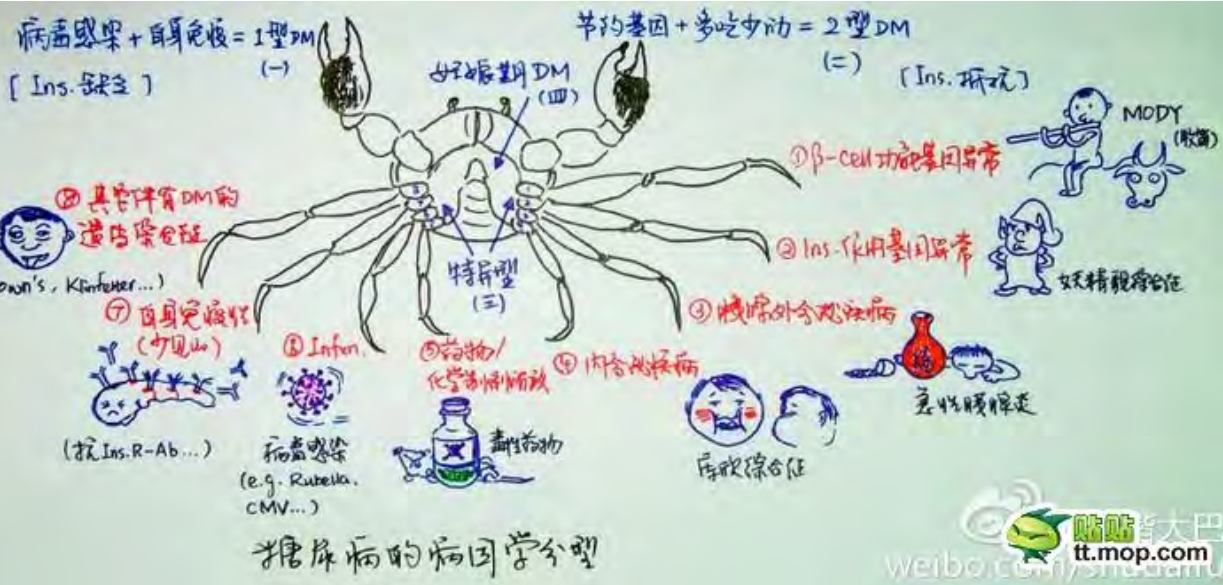 病毒感染+自身免疫=1型DM
(一)
[Ins.缺乏]
节约基因+多吃少动=2型DM
(二)
[Ins.抵抗]
妊娠期DM
(四)
特异型
(三)
①β-cell功能基因异常
MODY
(牧笛)
②Ins.作用基因异常
妖精貌综合征
③胰腺外分泌疾病
急性胰腺炎
④内分泌疾病
库欣综合征
⑤药物/
化学制剂所致
毒性药物
Infxn.
病毒感染
(e.g. Rubella.
CMV...)
⑦自身免疫性
(少见)
(抗Ins.R-Ab...)
⑧其它伴有DM的
遗传综合征
own's, Klinfelter...)
糖尿病的病因学分型
大巴
weibo.com/
贴贴
tt.mop.com